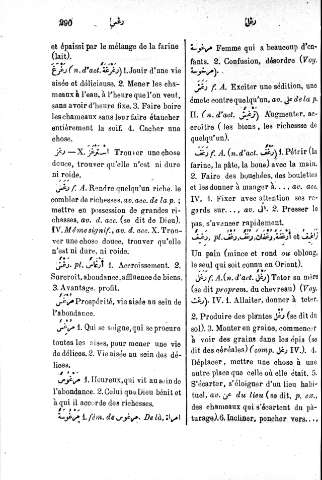 290 رغس رغل
et épaissi par le mélange de la farine
(lait).
رَغْرَغَ (n. d'act. رَغْرَغَة) 1. Jouir d'une vie
aisée et délicieuse. 2. Mener les cha-
meaux à l'eau, à l'heure que l'on veut,
sans avoir d'heure fixe. 3. Faire boire
les chameaux sans leur faire étancher
entièrement la soif. 4. Cacher une
chose.
رغز — X. اسْتَرْغَزَ Trouver une chose
douce, trouver qu'elle n'est ni dure
ni roide.
رَغَسَ f. A. Rendre quelqu'un riche, le
combler de richesses, av. acc. de la p.;
mettre en possession de grandes ri-
chesses, av. d. acc. (se dit de Dieu).
IV. Même signif., av. d. acc. X. Trou-
ver une chose douce, trouver qu'elle
n'est ni dure, ni roide.
رَغْس pl. أَرْغَاس 1. Accroissement. 2.
Surcroît, abondance, affluence de biens.
3. Avantage, profit.
رغس Prospérité, vie aisée au sein de
l'abondance.
مرغس 1. Qui se soigne, qui se procure
toutes les aises, pour mener une vie
de délices. 2. Vie aisée au sein des dé-
lices.
مرغوس 1. Heureux, qui vit au sein de
l'abondance. 2. Celui que Dieu bénit et
à qui il accorde des richesses.
مرغوسة 1. fém. de مرغوس. De là, امرأة
مرغوسة Femme qui a beaucoup d'en-
fants. 2. Confusion, désordre (Voy.
مرغوسة).
رغش f. A. Exciter une sédition, une
émote contre quelqu'un, av. على de la p.
II. (n. d'act. ) Augmenter, ac-
croître (les biens, les richesses de
quelqu'un).
رَغَفَ f. A. (n. d'act. رَغْف) 1. Pétrir (la
farine, la pâte, la boue) avec la main.
2. Faire des bouchées, des boulettes
et les donner à manger à..., av. acc.
IV. 1. Fixer avec attention ses re-
gards sur..., av. الى. 2. Presser le
pas, s'avancer rapidement.
رَغِيف pl. رُغُف, رُغْف, رُغْفَان, أَرْغِفَة et تَرَاغِيف
Un pain (mince et rond ou oblong,
le seul qui soit connu en Orient).
رَغَلَ f. A. (n. d'act. رَغْل) Teter sa mère
(se dit proprem. du chevreau) (Voy.
رغث). IV. 1. Allaiter, donner à teter.
2. Produire des plantes رغل (se dit du
sol). 3. Monter en grains, commencer
à voir des grains dans les épis (se
dit des céréales) (comp. رغل IV.). 4.
Déplacer, mettre une chose à une
autre place que celle où elle était. 5.
S'écarter, s'éloigner d'un lieu habi-
tuel, av. عن du lieu (se dit, p. ex.,
des chameaux qui s'écartent du pâ-
turage). 6. Incliner, pencher vers...,